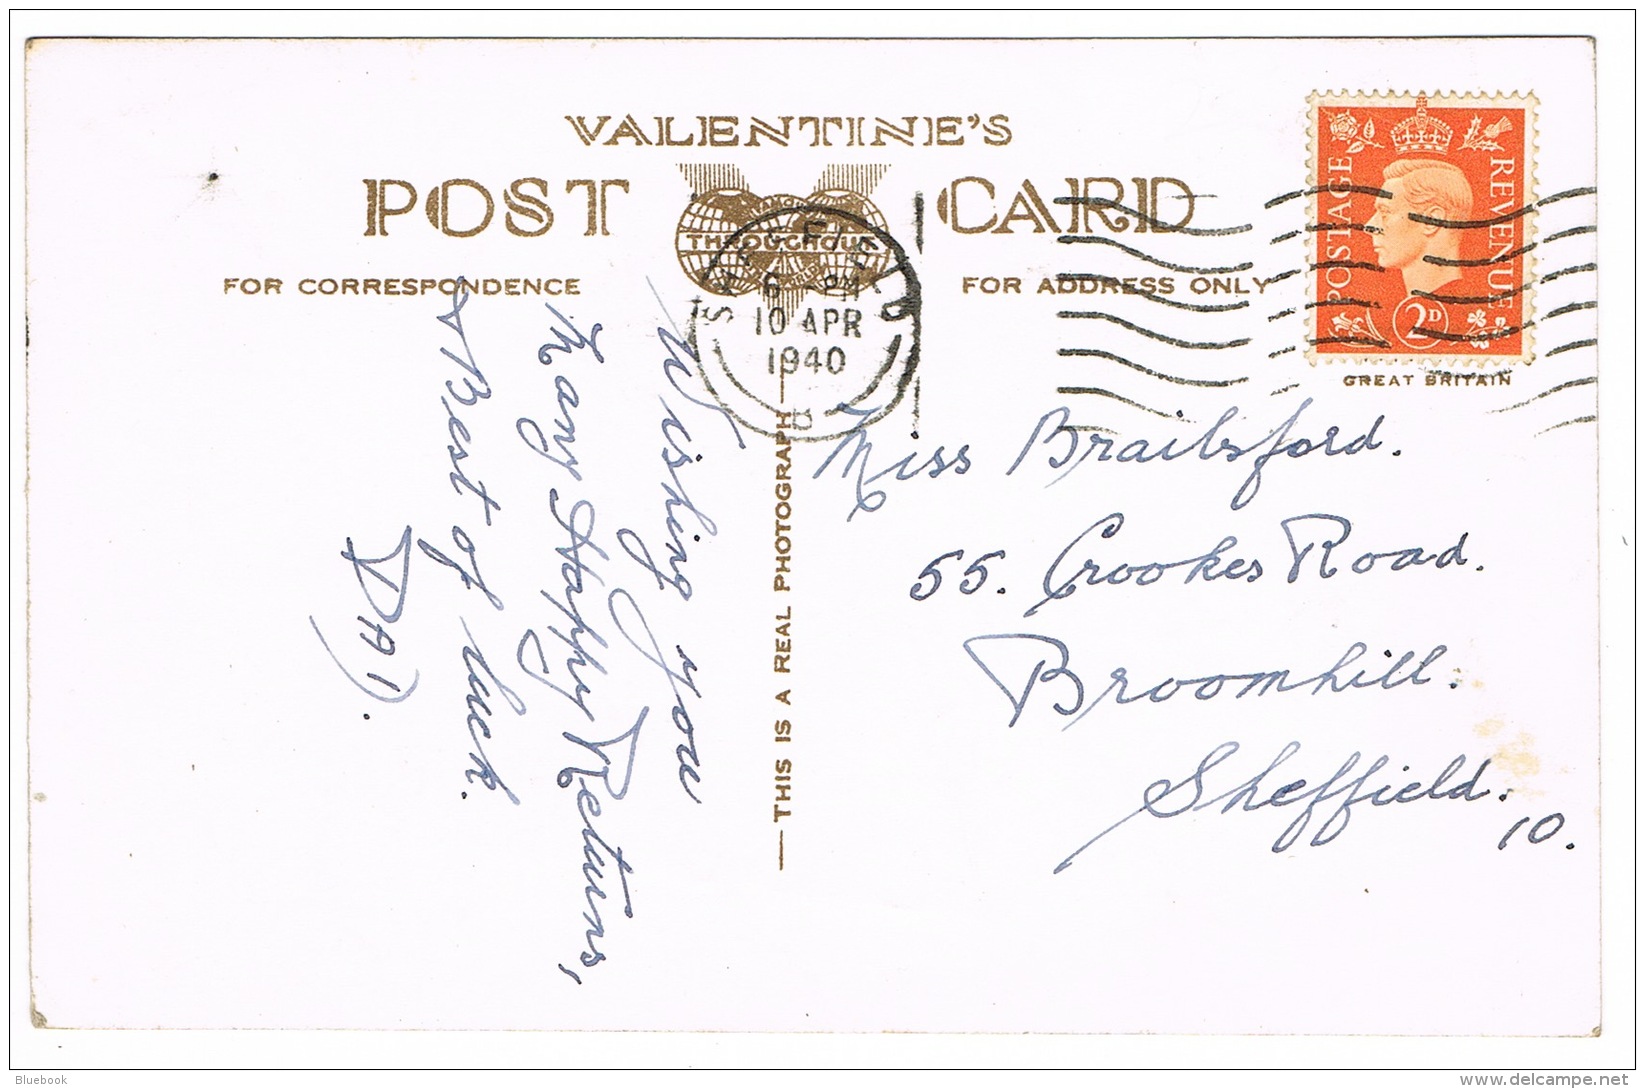 VALENTINE'S
POST CARD
THROUGHOUT
FOR CORRESPONDENCE
FOR ADDRESS ONLY
SHEFFIELD
6 - PM
10 APR
1940
B
POSTAGE
REVENUE
2D
GREAT BRITAIN
Wishing you
Many Happy Returns,
& Best of luck.
DAD.
THIS IS A REAL PHOTOGRAPH
Miss Brailsford.
55. Crookes Road.
Broomhill.
Sheffield.
10.
Bluebook
delcampe.net